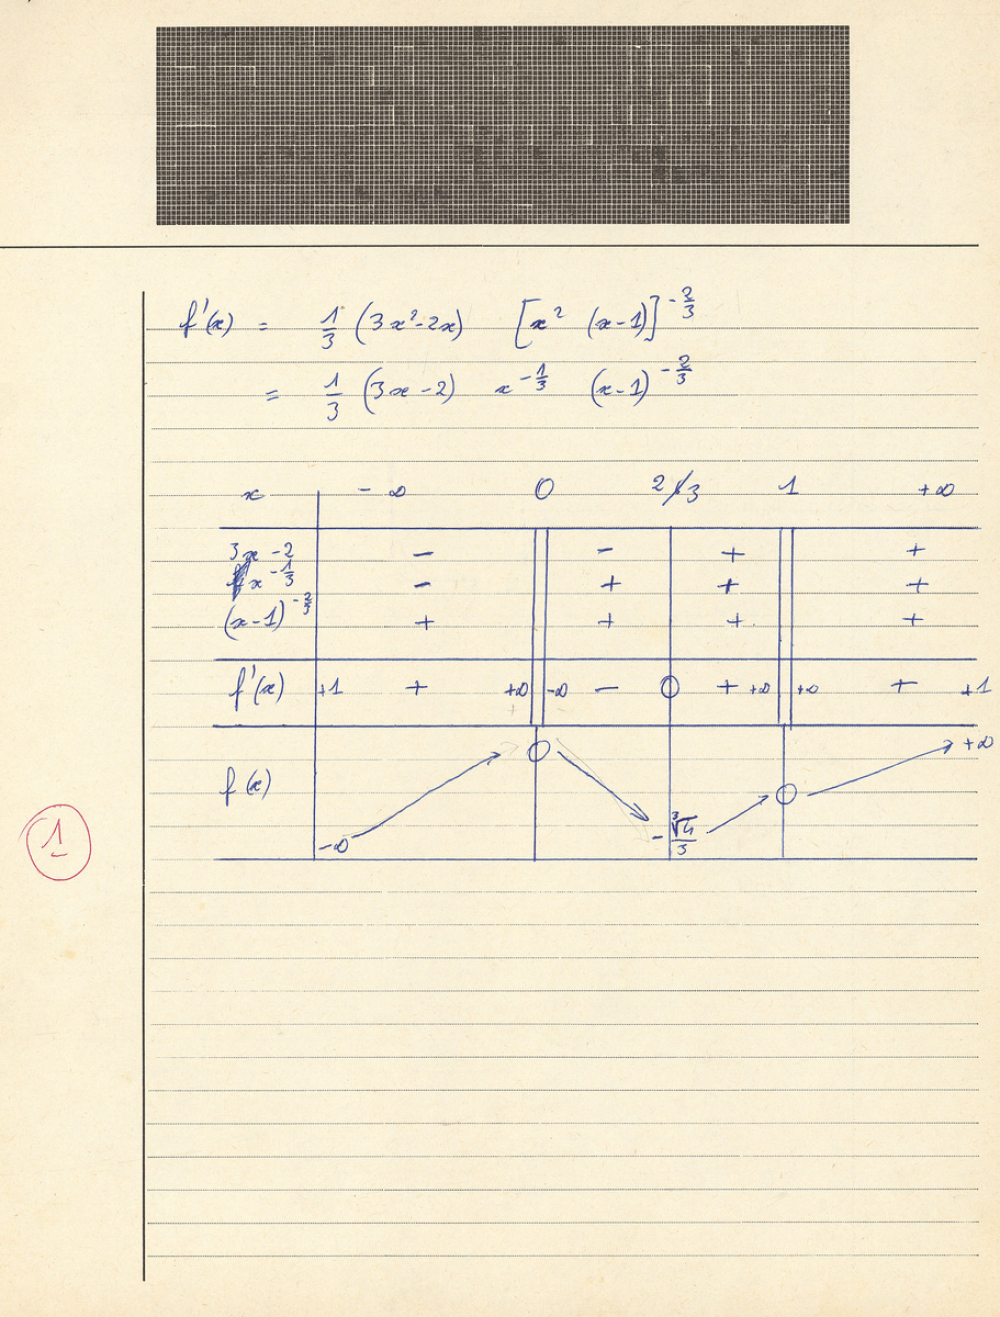 f'(x) = 1/3 (3x²-2x) [x² (x-1)]^-2/3
= 1/3 (3x-2) x^-1/3 (x-1)^-2/3
x -∞ 0 2/3 1 +∞
3x-2 - - + +
x^-1/3 - + + +
(x-1)^-2/3 + + + +
f'(x) +1 + +∞ -∞ - 0 + +∞ +∞ + +1
f(x) -∞ 0 -∛4/3 0 +∞
1